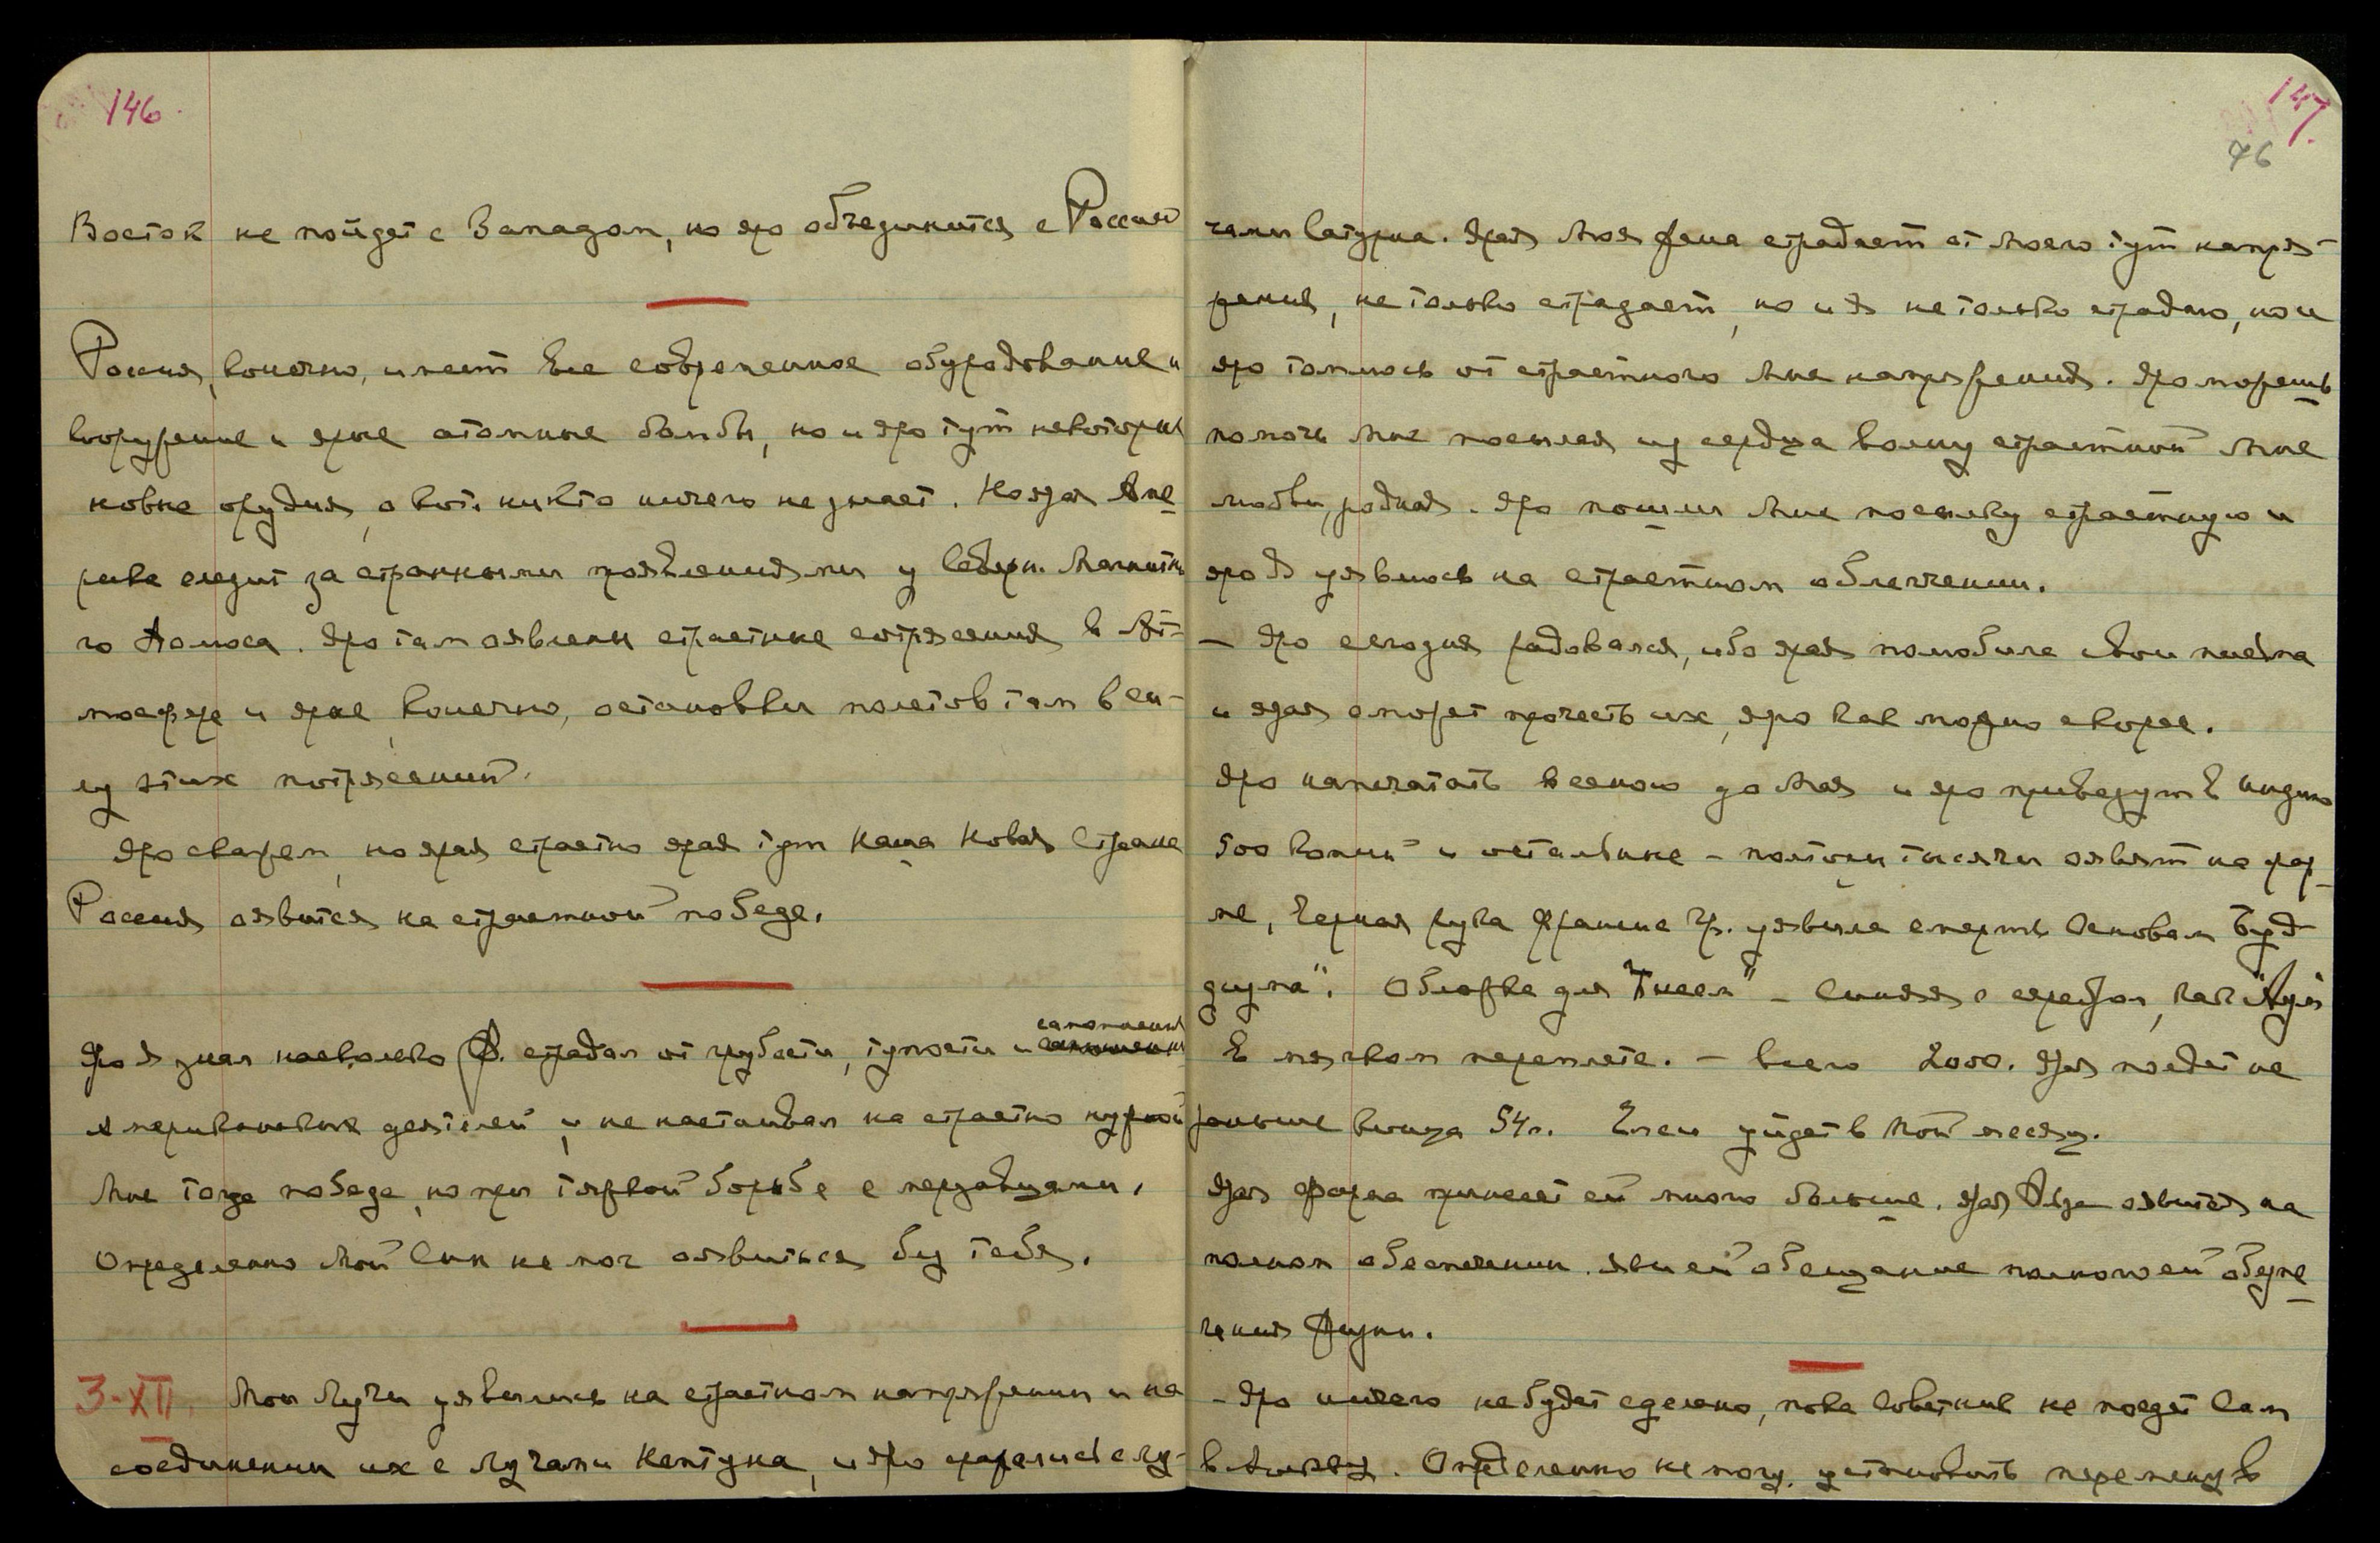 146.
Восток не пойдет с Западом, но яро объединится с Россией
Россия, конечно, имеет все современное оборудование и
вооружение и ярые атомные бомбы, но и яро тут некоторые
новые орудия, о кот. никто ничего не знает. Когда Аме
рика следит за странными проявлениями у Северн. Магнитно
го Полюса. Яро там явлены страстные сотрясения в Ат-
мосфере и ярые, конечно, остановки полетов там в си-
лу этих потрясений.
Яро скажем, но ярая страстно ярая тут Наша Новая Страна
Россия оявится на страстной победе.
Яро Я знал насколько Ф. страдал от грубости, тупости и самомнения
Американских деятелей, и не настаивал на страстно нужной
Мне тогда победе, но при тяжкой борьбе с мерзавцами.
Определенно Мой Сын не мог оявиться без тебя.
3-XII. Мои Лучи уявились на страстном напряжении и на
соединении их с Лучами Нептуна, и яро сражались с лу-
147.
76
чами Сатурна. Ярая Моя Жена страдает от Моего тут напря-
жения, не только страдает, но и Я не только страдаю, но и
яро томлюсь от страстного Мне напряжения. Яро можешь
помочь Мне посылая из сердца волну страстной Мне
любви, родная. Яро пошли Мне посылку страстную и
яро Я уявлюсь на страстном облегчении.
- Яро сегодня радовался, ибо ярая полюбила Мои письма
и ярая сможет прочесть их, яро как можно скорее.
Яро напечатать весною до Мая и яро привезут в Индию
500 копий и остальные - полторы тысячи оявят на фер
ме, Черная рука Франсис Гр. уявила смерть Основам Буд-
дизма". Обложка для "Писем" - Синяя с серебром, как "Аум"
В мягком переплете. - Всего 2000. Яра поедет не
раньше конца 54 г. Елси уйдет в Мой месяц.
Ярая ферма принесет ей много больше. Ярая Ояна оявится на
полном обеспечении. Яви ей обещание полного ей обуче
чения Жизни.
- Яро ничего не будет сделано, пока Советник не поедет Сам
в Москву. Определенно не могу, установить перемену в